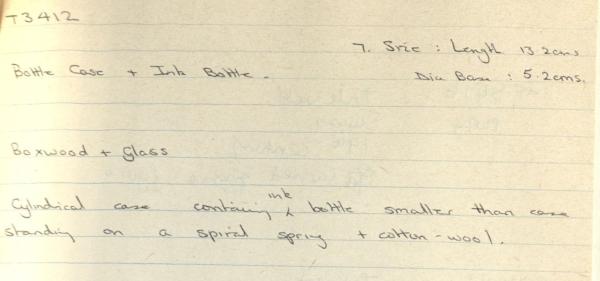 T3412
7. Size : Length 13.2cms
Bottle Case + Ink Bottle.
Dia Base : 5.2cms.
Boxwood + Glass
Cylindrical case containing ink bottle smaller than case
standing on a spiral spring + cotton-wool.